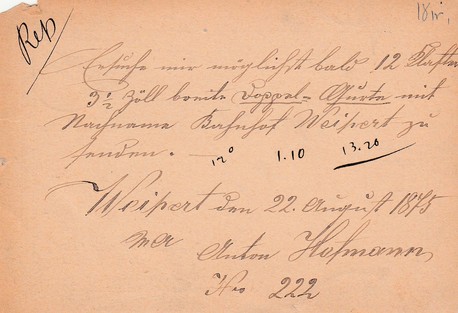 18 IV.
Rep
Ersuche mir möglichst bald 12 Klafter
Zoll breite Doppel-Gurte mit
Nachname Bahnhof Weipert zu
senden. —
12° 1.10 13.20
Weipert den 22. August 1875
Anton Hofmann
Nro 222